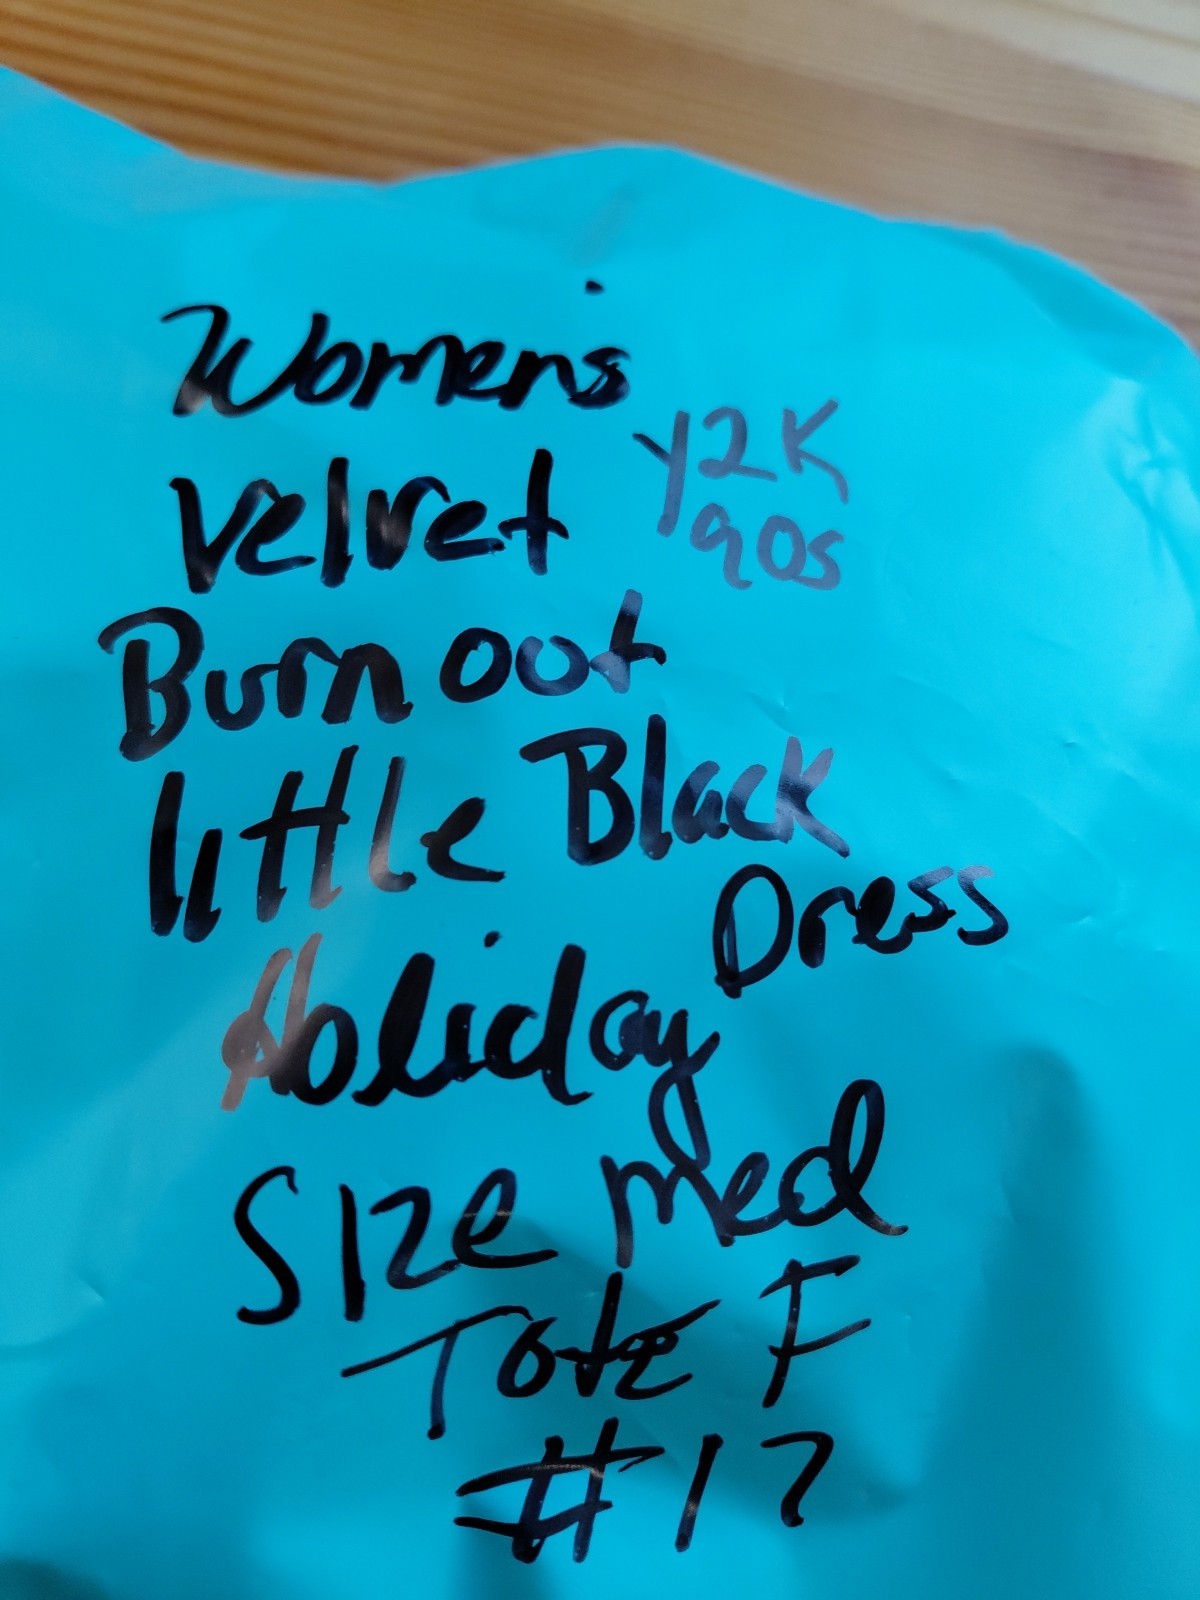 Womens
Velvet
Y2K
90s
Burn out
little Black
Dress
Holiday
Size Med
Tote F
#17